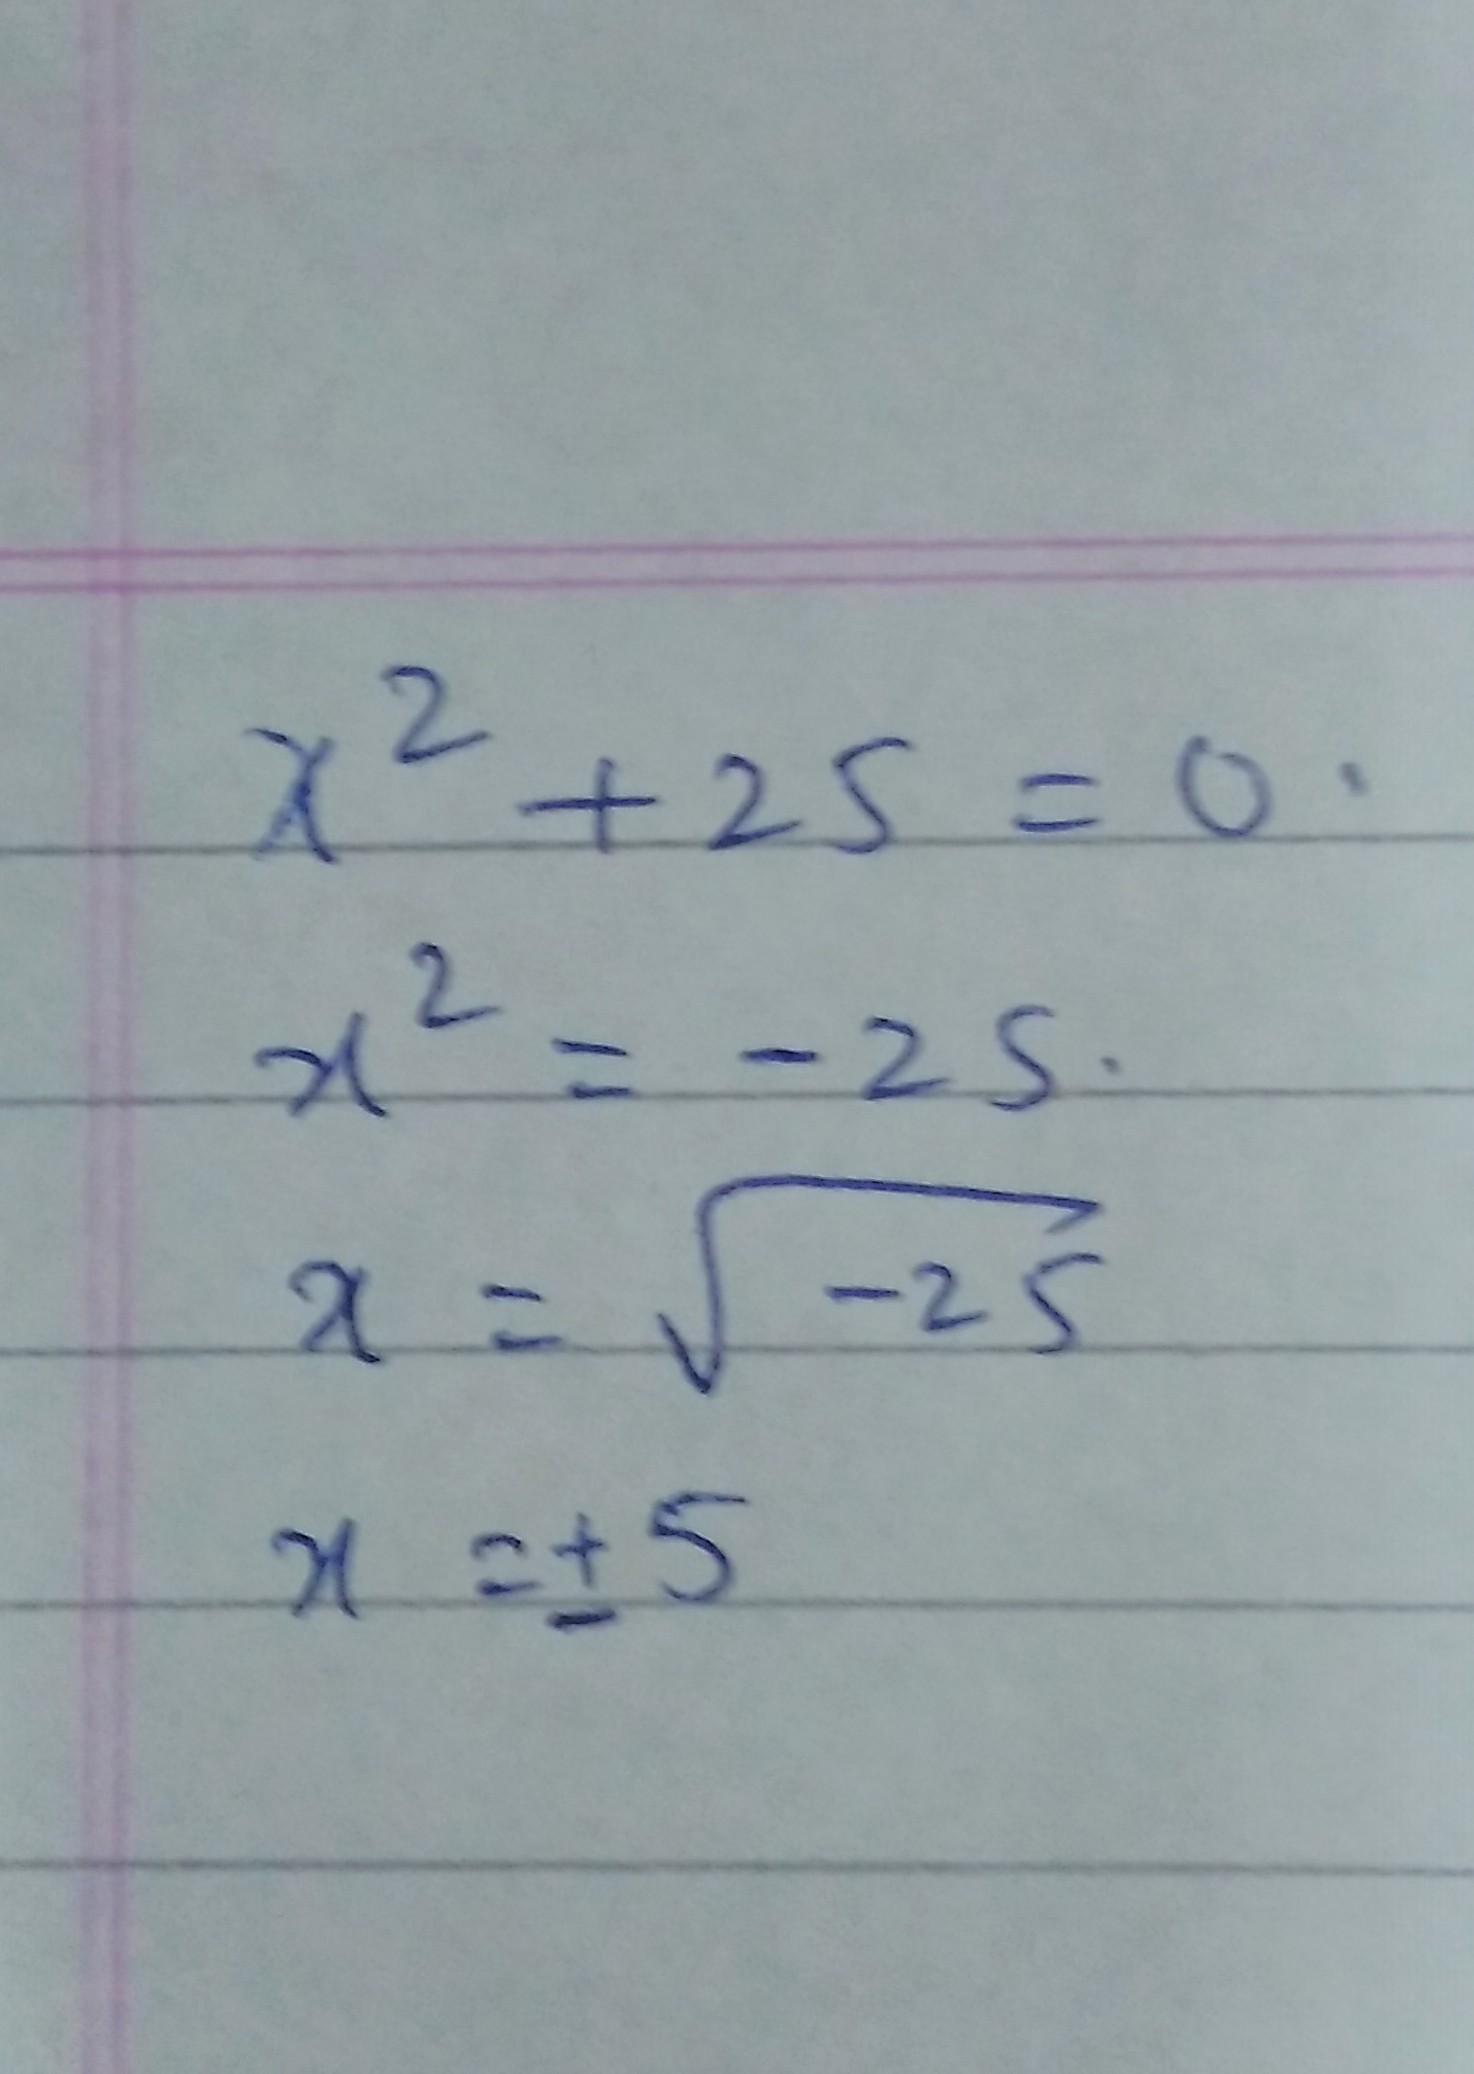 x² + 25 = 0.
x² = -25.
x = √-25
x = ±5